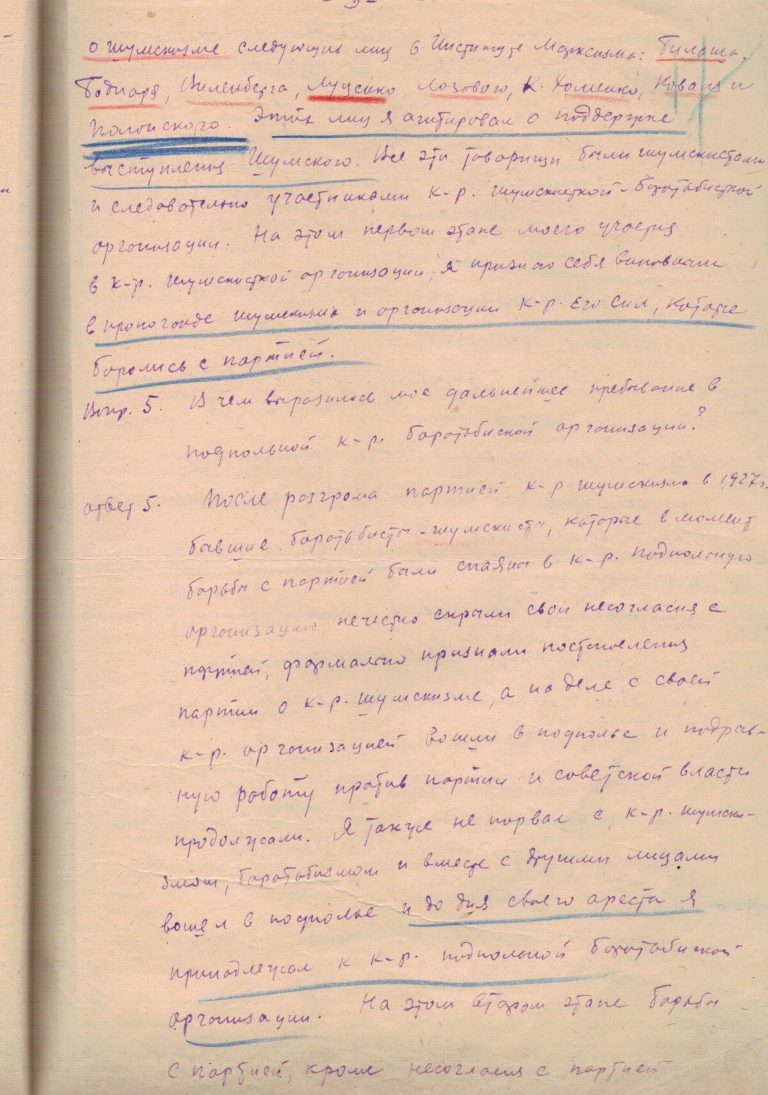 - 9 -
о шумскизме следующие лиц в Институте Марксизма: Билаша,
Боднаря, Виленберга, Луценко, Лозового, К. Хоменко, Коваля и
Полонского. Этих лиц я агитировал о поддержке
выступления Шумского. Все эти товарищи были шумскистами
и следовательно участниками к-р. шумскисткой-боротбисткой
организации. На этом первом этапе моего участия
в к-р. шумскисткой организации, я признаю себя виновным
в пропоганде шумскизма и организации к-р. его сил, которые
боролись с партией.
Вопр. 5. В чем выразилось мое дальнейшее пребывание в
подпольной к-р. боротьбиской организации?
ответ 5. После розгрома партией к-р шумскизма в 1927 г.
бывшие боротьбисты-шумскисты, которые в момент
борьбы с партией были спаяны в к-р. подпольную
организацию, нечестно скрыли свои несогласия с
партией, формально признали постановления
партии о к-р. шумскизме, а на деле с своей
к-р. организацией вошли в подполье и подрыв-
ную роботу против партии и советской власти
продолжали. Я также не порвал с к-р. шумски-
змом, боротьбизмом и вместе с другими лицами
вошел в подполье и до дня своего ареста я
принадлежал к к-р. подпольной боротьбиской
организации. На этом втором этапе борьбы
с партией, кроме несогласия с партией